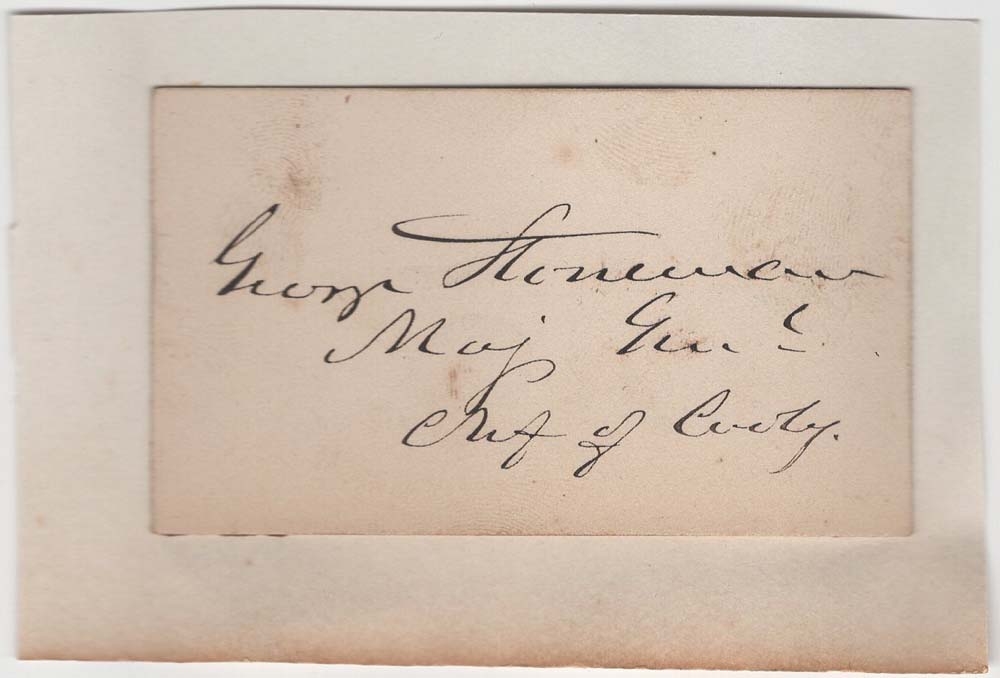 George Stoneman
Maj Genl.
Chief of Cavly.